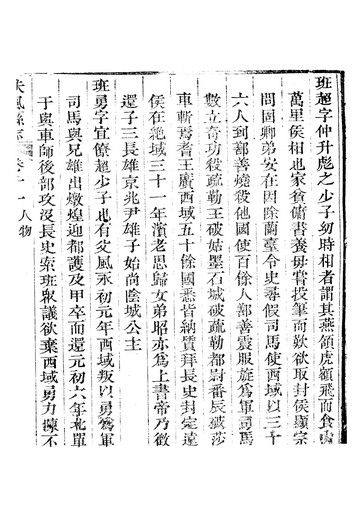 班超字仲升彪之少子幼時相者謂其燕頷虎頸飛而食肉
萬里侯相也家貧傭書養母嘗投筆而歎欲取封侯顯宗
問固卿弟安在因除蘭臺令史尋假司馬使西域以三十
六人到鄯善燒殺他國使百餘人鄯善震服旋為軍司馬
數立奇功殺疏勒王破姑墨石城破疏勒都尉番辰破莎
車斬焉耆王廣西域五十餘國悉皆納質拜長史封定遠
侯在絶域三十一年濱老思歸女弟昭亦為上書帝乃徵
還子三長雄京兆尹雄子始尚陰城公主
班勇字宜僚超少子也有父風永初元年西域叛以勇為軍
司馬與兄雄出燉煌迎都護及甲卒而還元初六年北單
于與車師後部攻沒長史索班眾議欲棄西域勇力陳不
扶風縣志 卷十一 人物